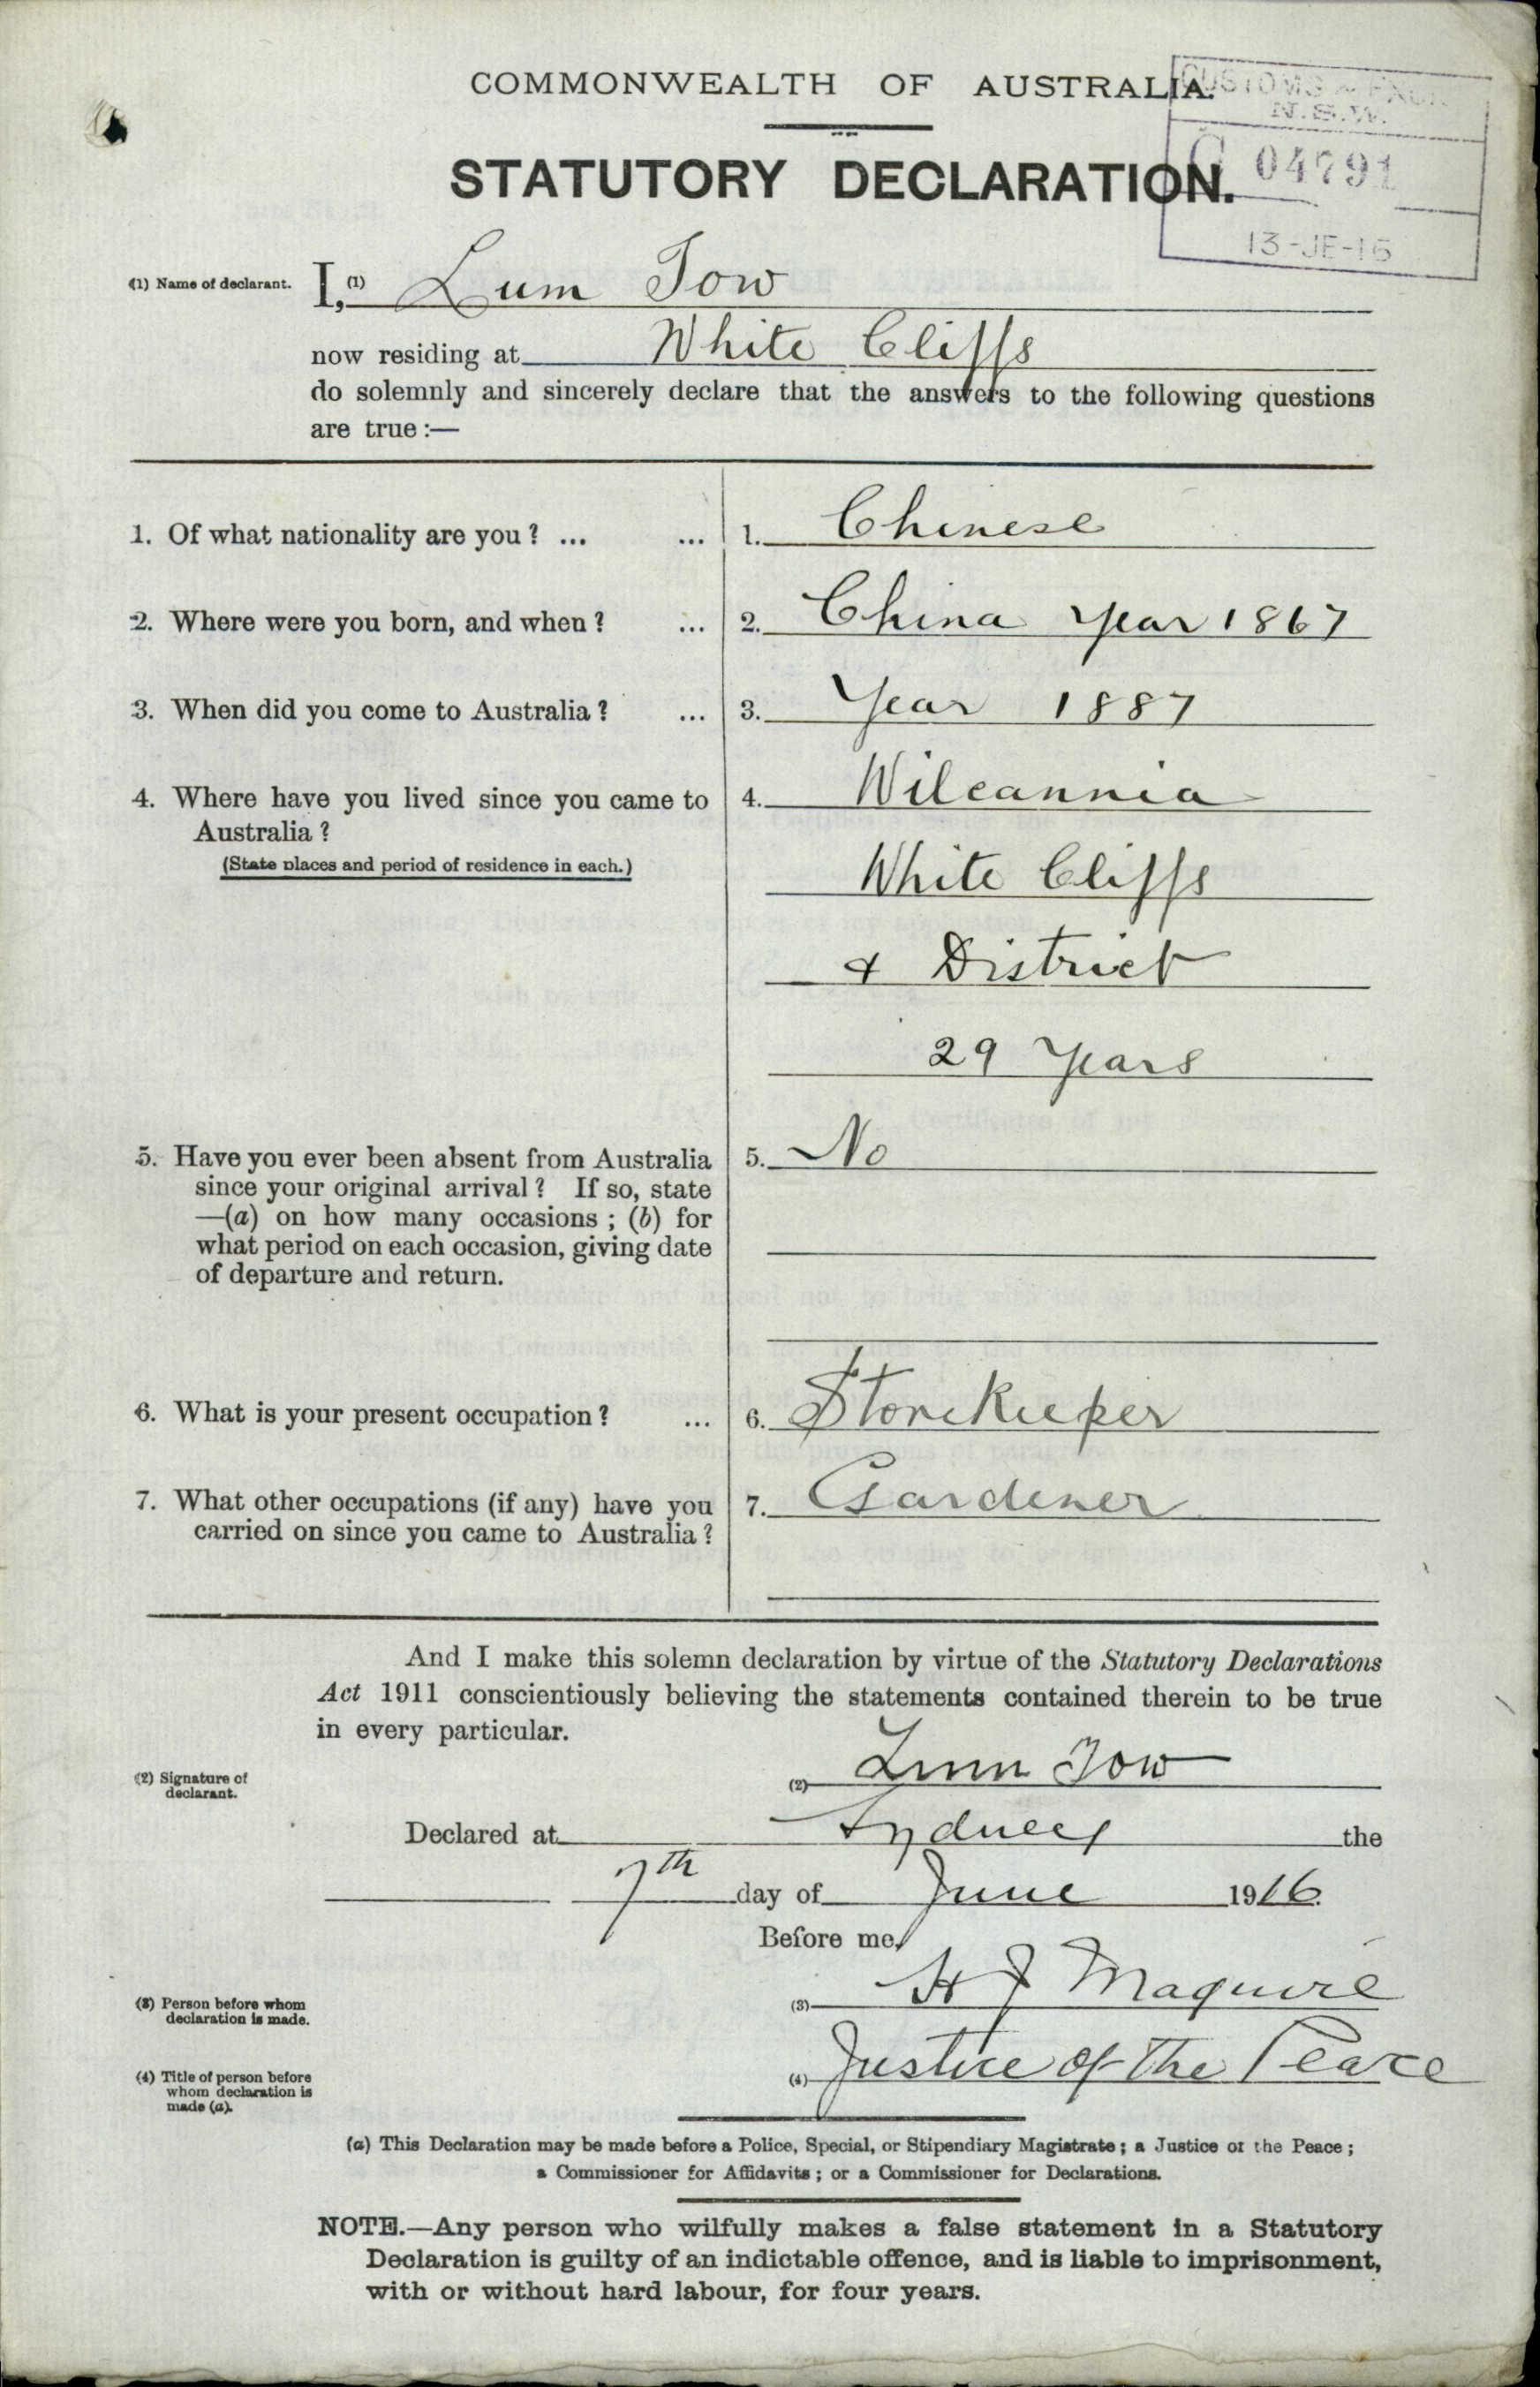 COMMONWEALTH OF AUSTRALIA.
CUSTOMS &
N.S.W.
04791
13-JE-16
STATUTORY DECLARATION.
(1) Name of declarant. I,(1) Lum Tow
now residing at White Cliffs
do solemnly and sincerely declare that the answers to the following questions
are true :—
1. Of what nationality are you ? ... ... 1. Chinese
2. Where were you born, and when ? ... 2. China Year 1867
3. When did you come to Australia ? ... 3. Year 1887
4. Where have you lived since you came to 4. Wilcannia
Australia ?
(State places and period of residence in each.)
White Cliffs
& District
29 Years
5. Have you ever been absent from Australia 5. No
since your original arrival ? If so, state
—(a) on how many occasions ; (b) for
what period on each occasion, giving date
of departure and return.
6. What is your present occupation ? ... 6. Storekeeper
7. What other occupations (if any) have you 7. Gardener
carried on since you came to Australia ?
And I make this solemn declaration by virtue of the Statutory Declarations
Act 1911 conscientiously believing the statements contained therein to be true
in every particular.
(2) Signature of
declarant.
(2) Lum Tow
Declared at Sydney the
7th day of June 1916.
Before me,
(3) H J Maguire
(3) Person before whom
declaration is made.
(4) Justice of the Peace
(4) Title of person before
whom declaration is
made (a).
(a) This Declaration may be made before a Police, Special, or Stipendiary Magistrate ; a Justice of the Peace ;
a Commissioner for Affidavits ; or a Commissioner for Declarations.
NOTE.—Any person who wilfully makes a false statement in a Statutory
Declaration is guilty of an indictable offence, and is liable to imprisonment,
with or without hard labour, for four years.